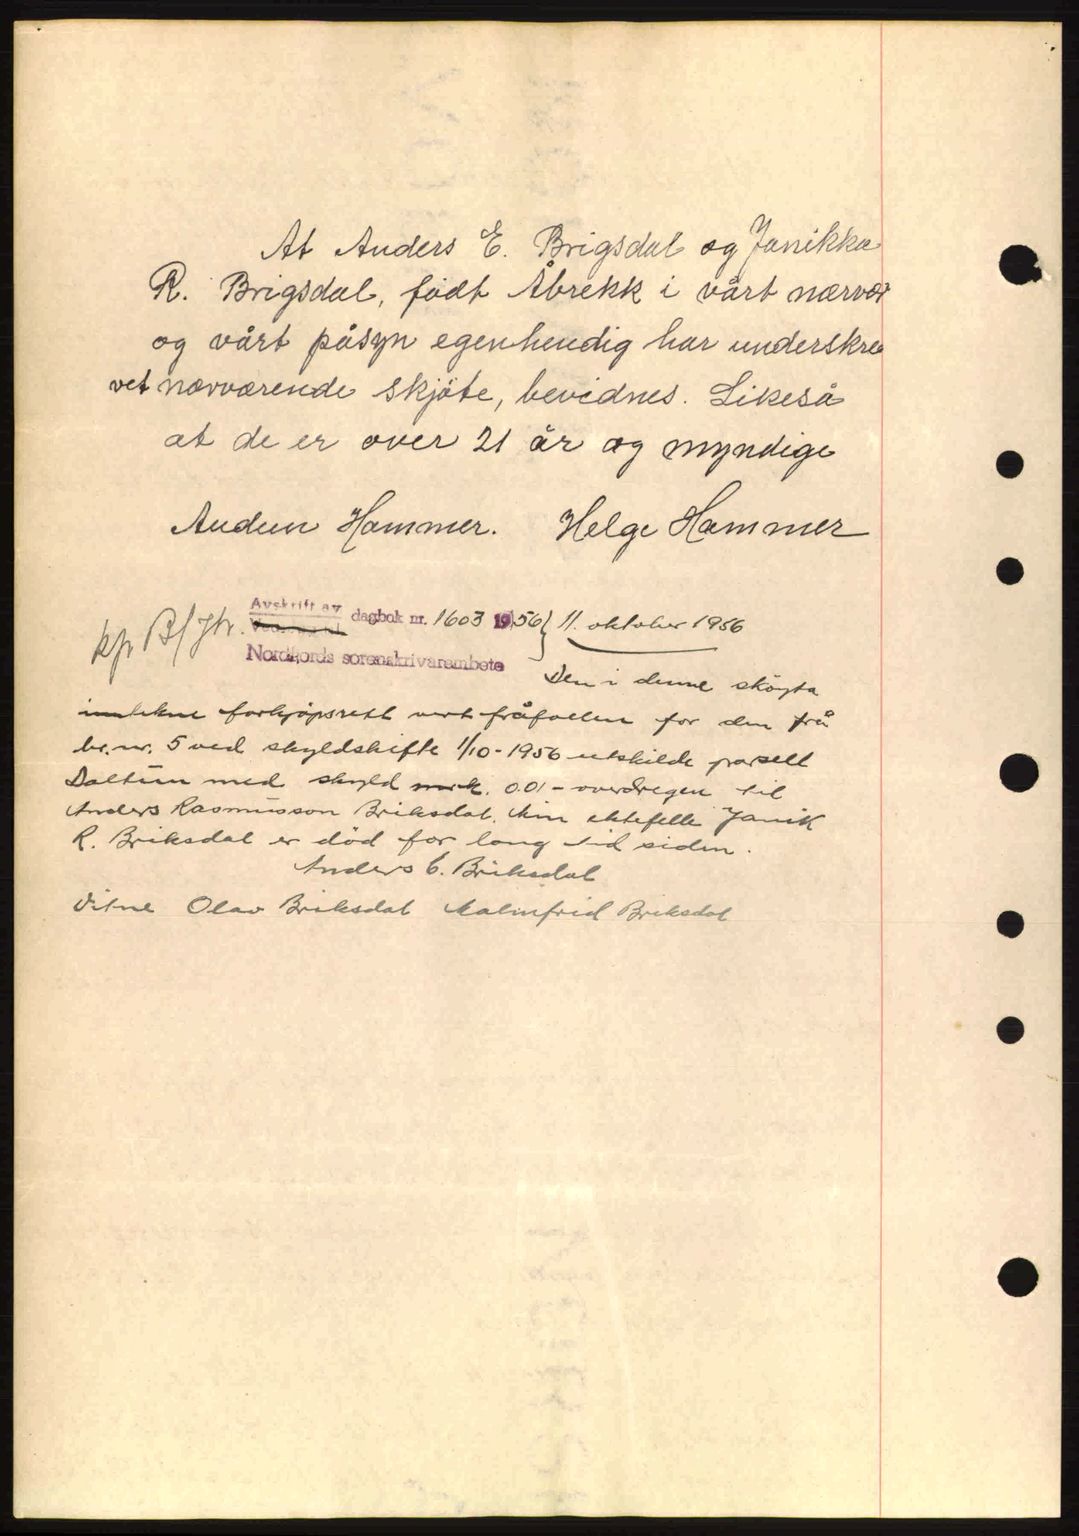 At Anders E. Brigsdal og Janikka
R. Brigsdal, født Åbrekk i vårt nærvær
og vårt påsyn egenhendig har underskre
vet nærværende skjøte, bevidnes. Likeså
at de er over 21 år og myndige
Audun Hammer. Helge Hammer
kp B/Jtr.
Avskrift av dagbok nr. 1603 1956} 11. oktober 1956
Nordfjords sorenskrivarembete
Den i denne skøyta
inntekne forkjøpsrett vert fråfallen for den frå
br. nr. 5 ved skyldskifte 1/10-1956 utskilde parsell
Daltun med skyld mrk. 0.01 - overdregen til
Anders Rasmusson Briksdal. Min ektefelle Janik
R. Briksdal er død for lang tid siden.
Anders E. Briksdal
Vitne Olav Briksdal Malmfrid Briksdal